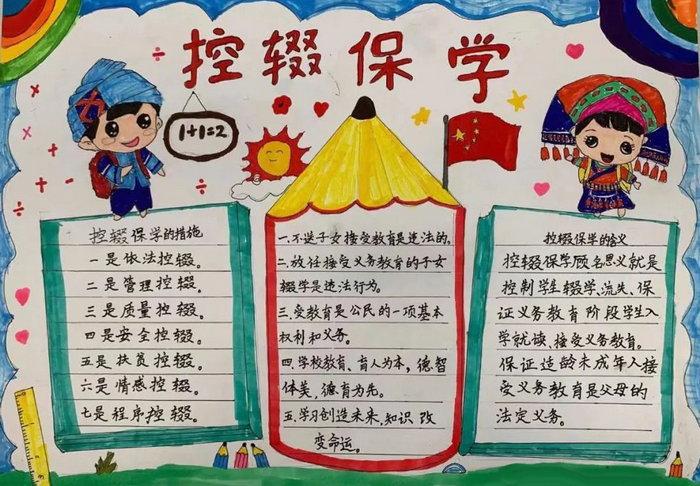 控辍保学
1+1=2
控辍保学的措施
一是依法控辍。
二是管理控辍。
三是质量控辍。
四是安全控辍。
五是扶贫控辍。
六是情感控辍。
七是程序控辍。
一.不送子女接受教育是违法的。
二.放任接受义务教育的子女
辍学是违法行为。
三.受教育是公民的一项基本
权利和义务。
四.学校教育、育人为本，德智
体美，德育为先。
五.学习创造未来，知识改
变命运。
控辍保学的含义
控辍保学顾名思义就是
控制学生辍学、流失、保
证义务教育阶段学生入
学就读、接受义务教育。
保证适龄未成年人接
受义务教育是父母的
法定义务。